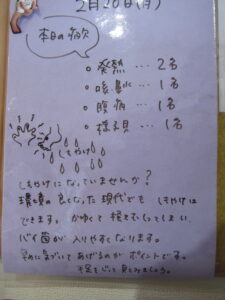 2月20日(月)
本日の病欠
○ 発熱 … 2名
○ 咳、鼻水 … 1名
○ 腹痛 … 1名
○ … 1名
しもやけ
しもやけになっていませんか?
環境の良くなった現代でも しもやけは
できます。かゆくて
バイ菌が入りやすくなります。
早めに気づいてあげるのが ポイントです。